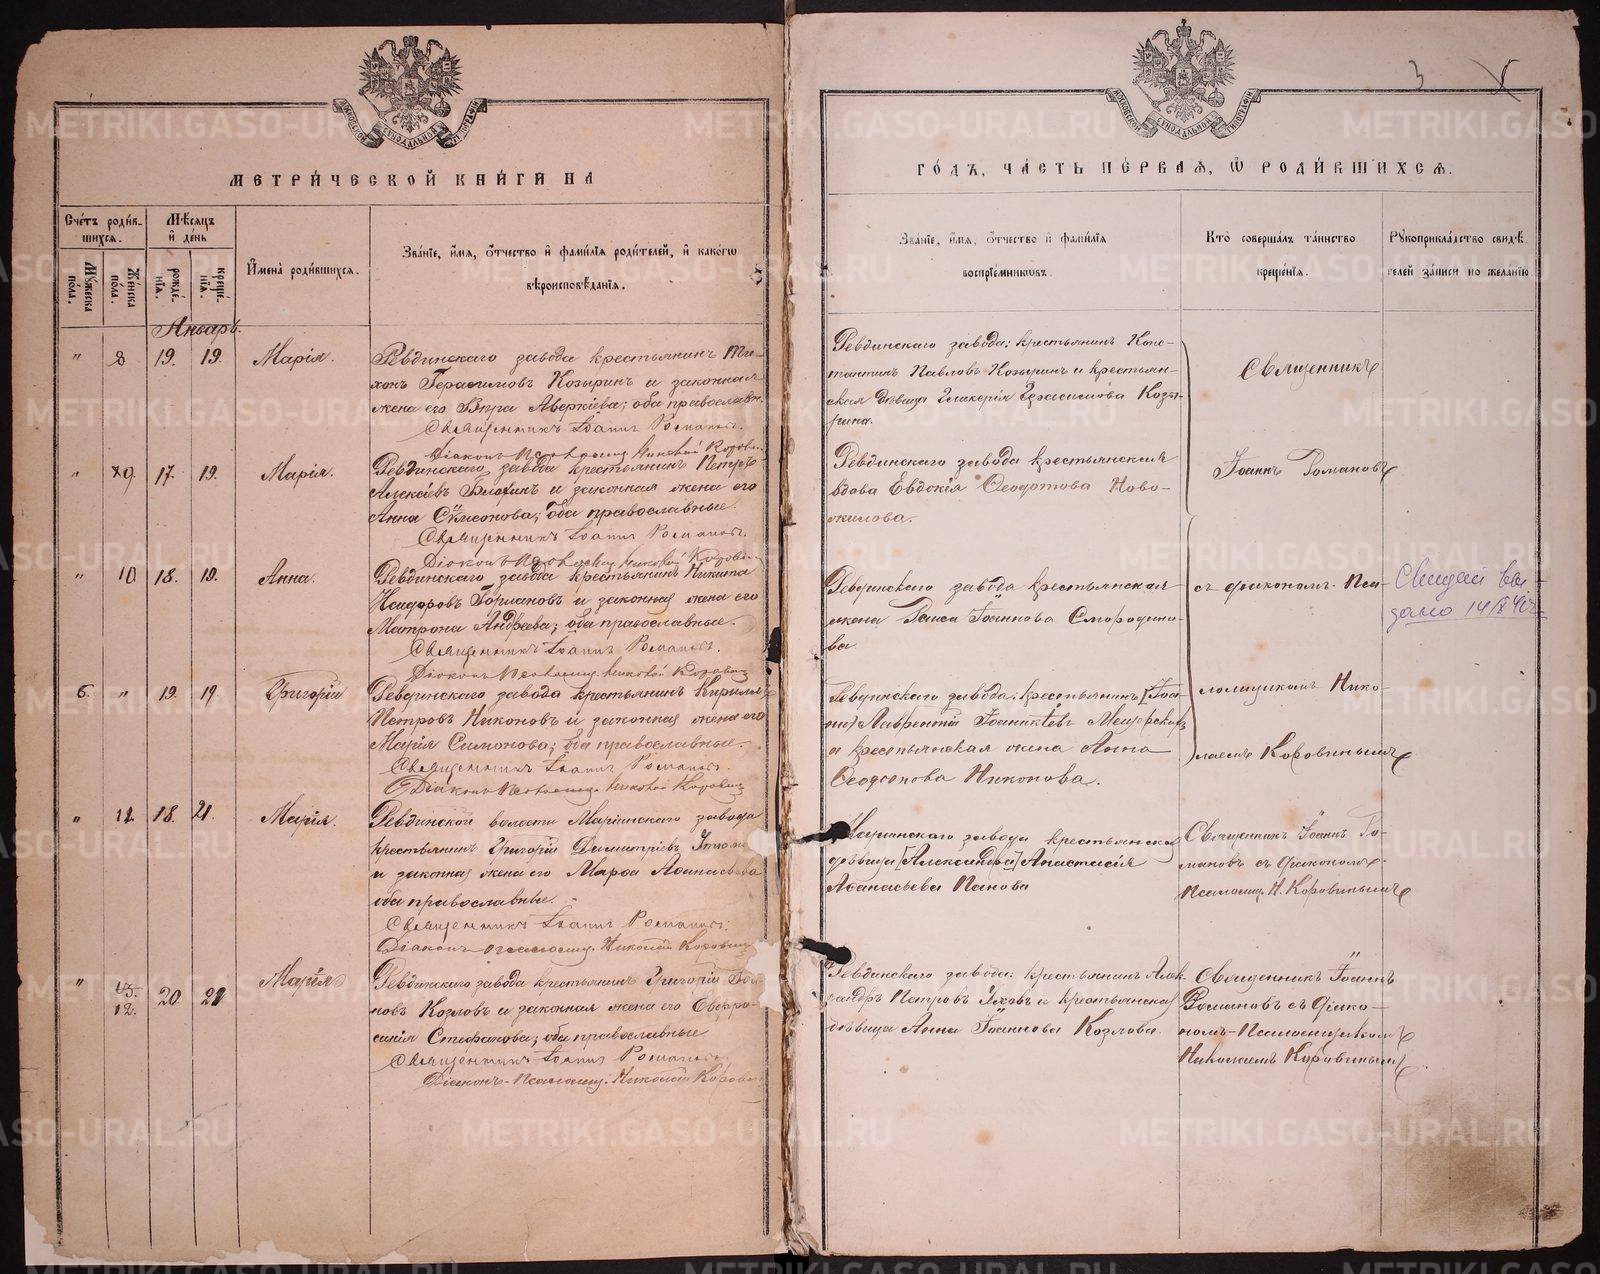 МЕТРИ́ЧЕСКОЙ КНИ́ГИ НА
Сче́тъ роди́в-
шихся.
Мѣ́сяцъ
и де́нь
Имена̀ роди́вшихся.
Зва́нїе, и́мя, о́тчество и фами́лїя роди́телей, и како́гѡ
вѣроисповѣ́данїя.
Му́жеска по́ла.
Же́нска по́ла.
рожде́-нїя.
креще́-нїя.
Январь.
" 8 19. 19. Марія. Ревдинскаго завода крестьянинъ Ти-
хонъ Герасимовъ Козыринъ и законная
жена его Вѣра Аверкіева; оба православн.
Священникъ Іоаннъ Романовъ.
Діаконъ Николай Коровин
" 9. 17. 19. Марія. Ревдинскаго завода крестьянинъ Петръ
Алексѣевъ Блохинъ и законная жена его
Анна Симеонова; оба православные.
Священникъ Іоаннъ Романовъ.
Діаконъ Николай Коровин
" 10. 18. 19. Анна. Ревдинскаго завода крестьянинъ Никита
Исидоровъ Горлановъ и законная жена его
Матрона Андреева; оба православные.
Священникъ Іоаннъ Романовъ.
Діаконъ Николай Коровин
6. " 19. 19 Григорій Ревдинскаго завода крестьянинъ Кириллъ
Петровъ Никоновъ и законная жена его
Марія Симонова; оба православные.
Священникъ Іоаннъ Романовъ.
Діаконъ Николай Коровин
" 11. 18. 21. Марія. Ревдинской волости Маріинскаго завода
крестьянинъ Григорій Димитріевъ
и законная жена его Марѳа Аѳанасьева
оба православные.
Священникъ Іоаннъ Романовъ.
Діаконъ псаломщ. Николай Коровин
" 12. 20. 21 Марія Ревдинскаго завода крестьянинъ Григорій
новъ Козловъ и законная жена его Евфро-
синія Стефанова; оба православные
Священникъ Іоаннъ Романовъ.
Діаконъ-Псаломщ. Николай Коровин
3
ГО́ДЪ, ЧА́СТЬ ПЕ́РВАЯ, Ѡ РОДИ́ВШИХСЯ.
Зва́нїе, и́мя, о́тчество и фами́лїя
воспрїе́мниковъ.
Кто̀ соверша́лъ та́инство
креще́нїя.
Рукоприкла́дство свидѣ́-
телей за́писи по жела́нїю
Ревдинскаго завода: крестьянинъ Конс-
тантинъ Павловъ Козыринъ и крестьян-
ская дѣвица Гликерія Герасимова Козы-
рина.
Ревдинскаго завода крестьянская
вдова Евдокія Ѳеодотова Ново-
жилова.
Ревдинскаго завода крестьянская
жена Раиса Іоаннова Смородино-
ва
Ревдинскаго завода: крестьянинъ [Іоан-
нъ] Лаврентій Іоанникіевъ Мещерскій
и крестьянская жена Анна
Ѳеодотова Никонова.
Священникъ
Іоаннъ Романовъ
съ діакономъ-Пса-
ломщикомъ Нико-
лаемъ Коровинымъ
Свидет вы-
дано
Маріинскаго завода крестьянская
дѣвица [Александра] Анастасія
Аѳанасьева Панова
Священникъ Іоаннъ Ро-
мановъ съ діакономъ-
Псаломщ. Н. Коровинымъ
Ревдинскаго завода: крестьянинъ Алек-
сандръ Петровъ и крестьянская
дѣвица Анна Іоаннова Козлова.
Священникъ Іоаннъ
Романовъ съ діако-
номъ-Псаломщикомъ
Николаемъ Коровинымъ
METRIKI.GASO-URAL.RU